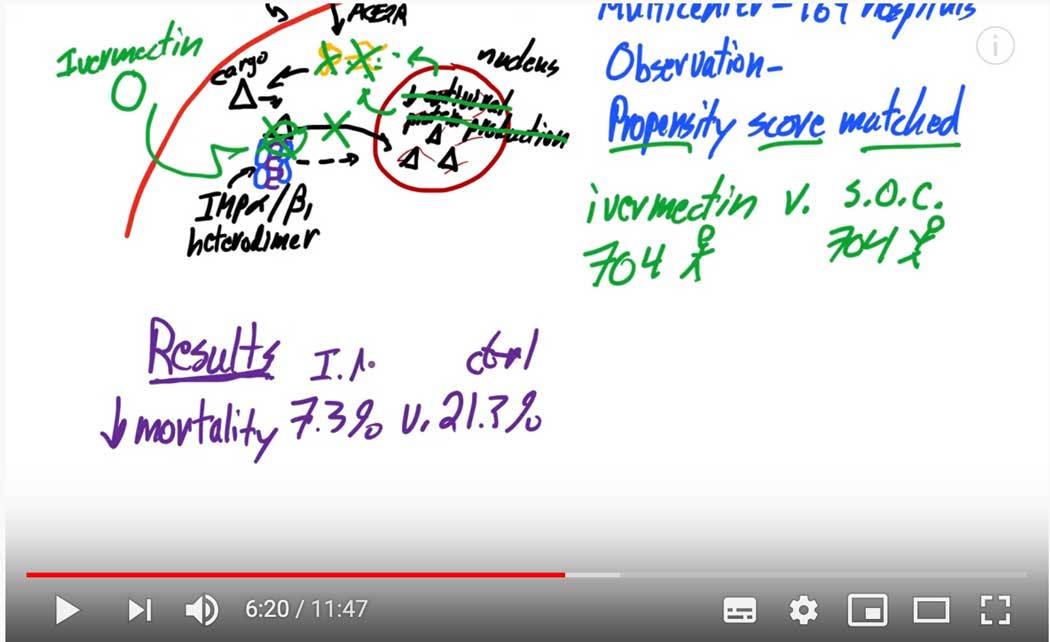 ACE2R
Ivermectin
cargo
nucleus
↓ antiviral
protein production
IMPα/β1
heterodimer
Multicenter – 169 hospitals
Observation–
Propensity score matched
ivermectin v. S.O.C.
704 704
Results I.M. ctrl
↓ mortality 7.3% v. 21.3%
6:20 / 11:47